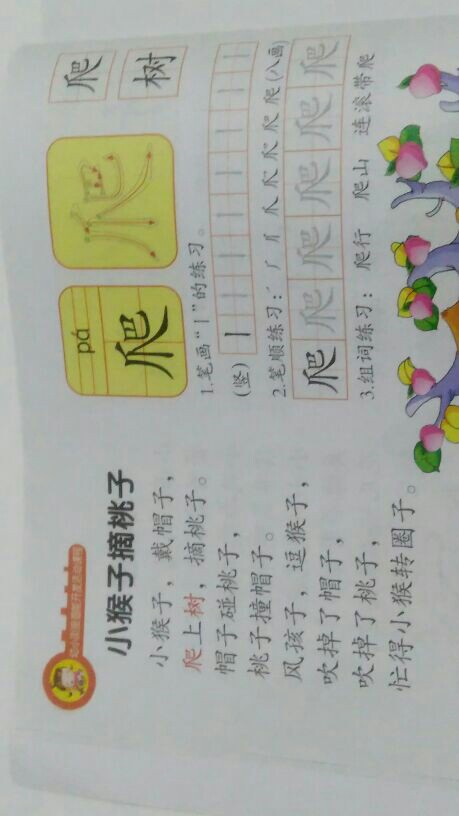 小猴子摘桃子
小猴子，戴帽子，
爬上树，摘桃子。
帽子碰桃子，
桃子撞帽子。
风孩子，逗猴子，
吹掉了帽子，
吹掉了桃子，
忙得小猴转圈子。
爬 树
pá
爬 爬
1.笔画“丨”的练习。
(竖) 丨 丨 丨 丨 丨 丨 丨 丨
2.笔顺练习：
(八画)
爬 爬 爬 爬 爬 爬
3.组词练习： 爬行 爬山 连滚带爬